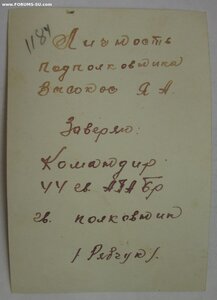 www.FORUMS-SU.com
1184
Личность
подполковника
Высокос Я А
Заверяю:
Командир
44 гв. АПА Бр
гв. полковник
/ Рябчук /.